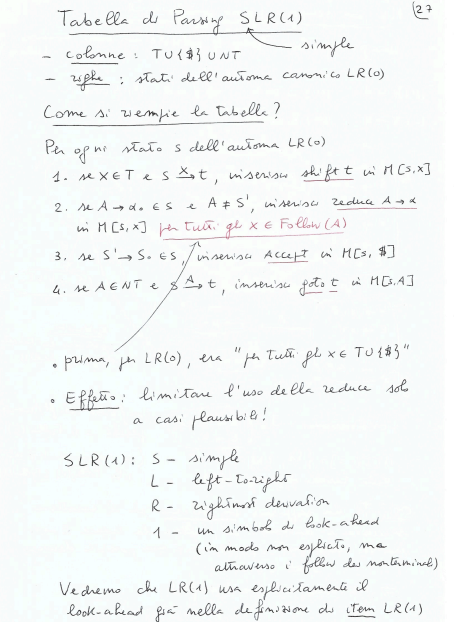 27
Tabella di Parsing SLR(1)
simple
- colonne : T∪{$}∪NT
- righe : stati dell'automa canonico LR(0)
Come si riempie la tabella?
Per ogni stato s dell'automa LR(0)
1. se x∈T e s →x t, inserisci shift t in M[s,x]
2. se A→α. ∈ s e A ≠ S', inserisci reduce A→α
in M[s,x] per tutti gli x ∈ Follow(A)
3. se S'→S. ∈ s, inserisci Accept in M[s,$]
4. se A∈NT e s →A t, inserisci goto t in M[s,A]
• prima, per LR(0), era "per tutti gli x ∈ T∪{$}"
• Effetto : limitare l'uso della reduce solo
a casi plausibili!
SLR(1): S - simple
L - left-to-right
R - rightmost derivation
1 - un simbolo di look-ahead
(in modo non esplicito, ma
attraverso i follow dei nonterminali)
Vedremo che LR(1) usa esplicitamente il
look-ahead già nella definizione di item LR(1)